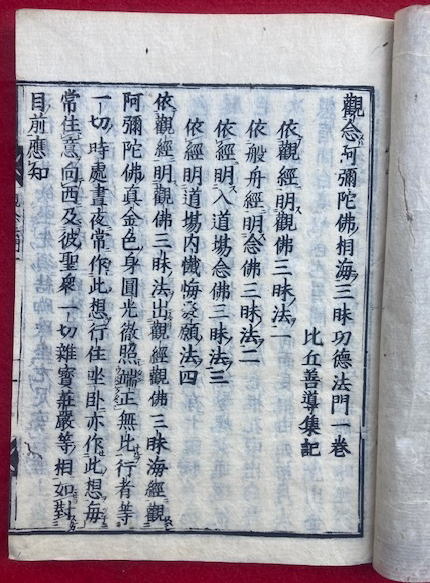 觀念阿彌陀佛相海三昧功德法門一卷
比丘善導集記
依觀經明觀佛三昧法一
依般舟經明念佛三昧法二
依經明入道場念佛三昧法三
依經明道場内懺悔發願法四
依觀經明觀佛三昧法出觀經觀佛三昧海經觀
阿彌陀佛真金色身圓光徹照端正無比行者等
一切時處晝夜常作此想行住坐臥亦作此想每
常住意向西及彼聖衆一切雜寶莊嚴等相如對
目前應知